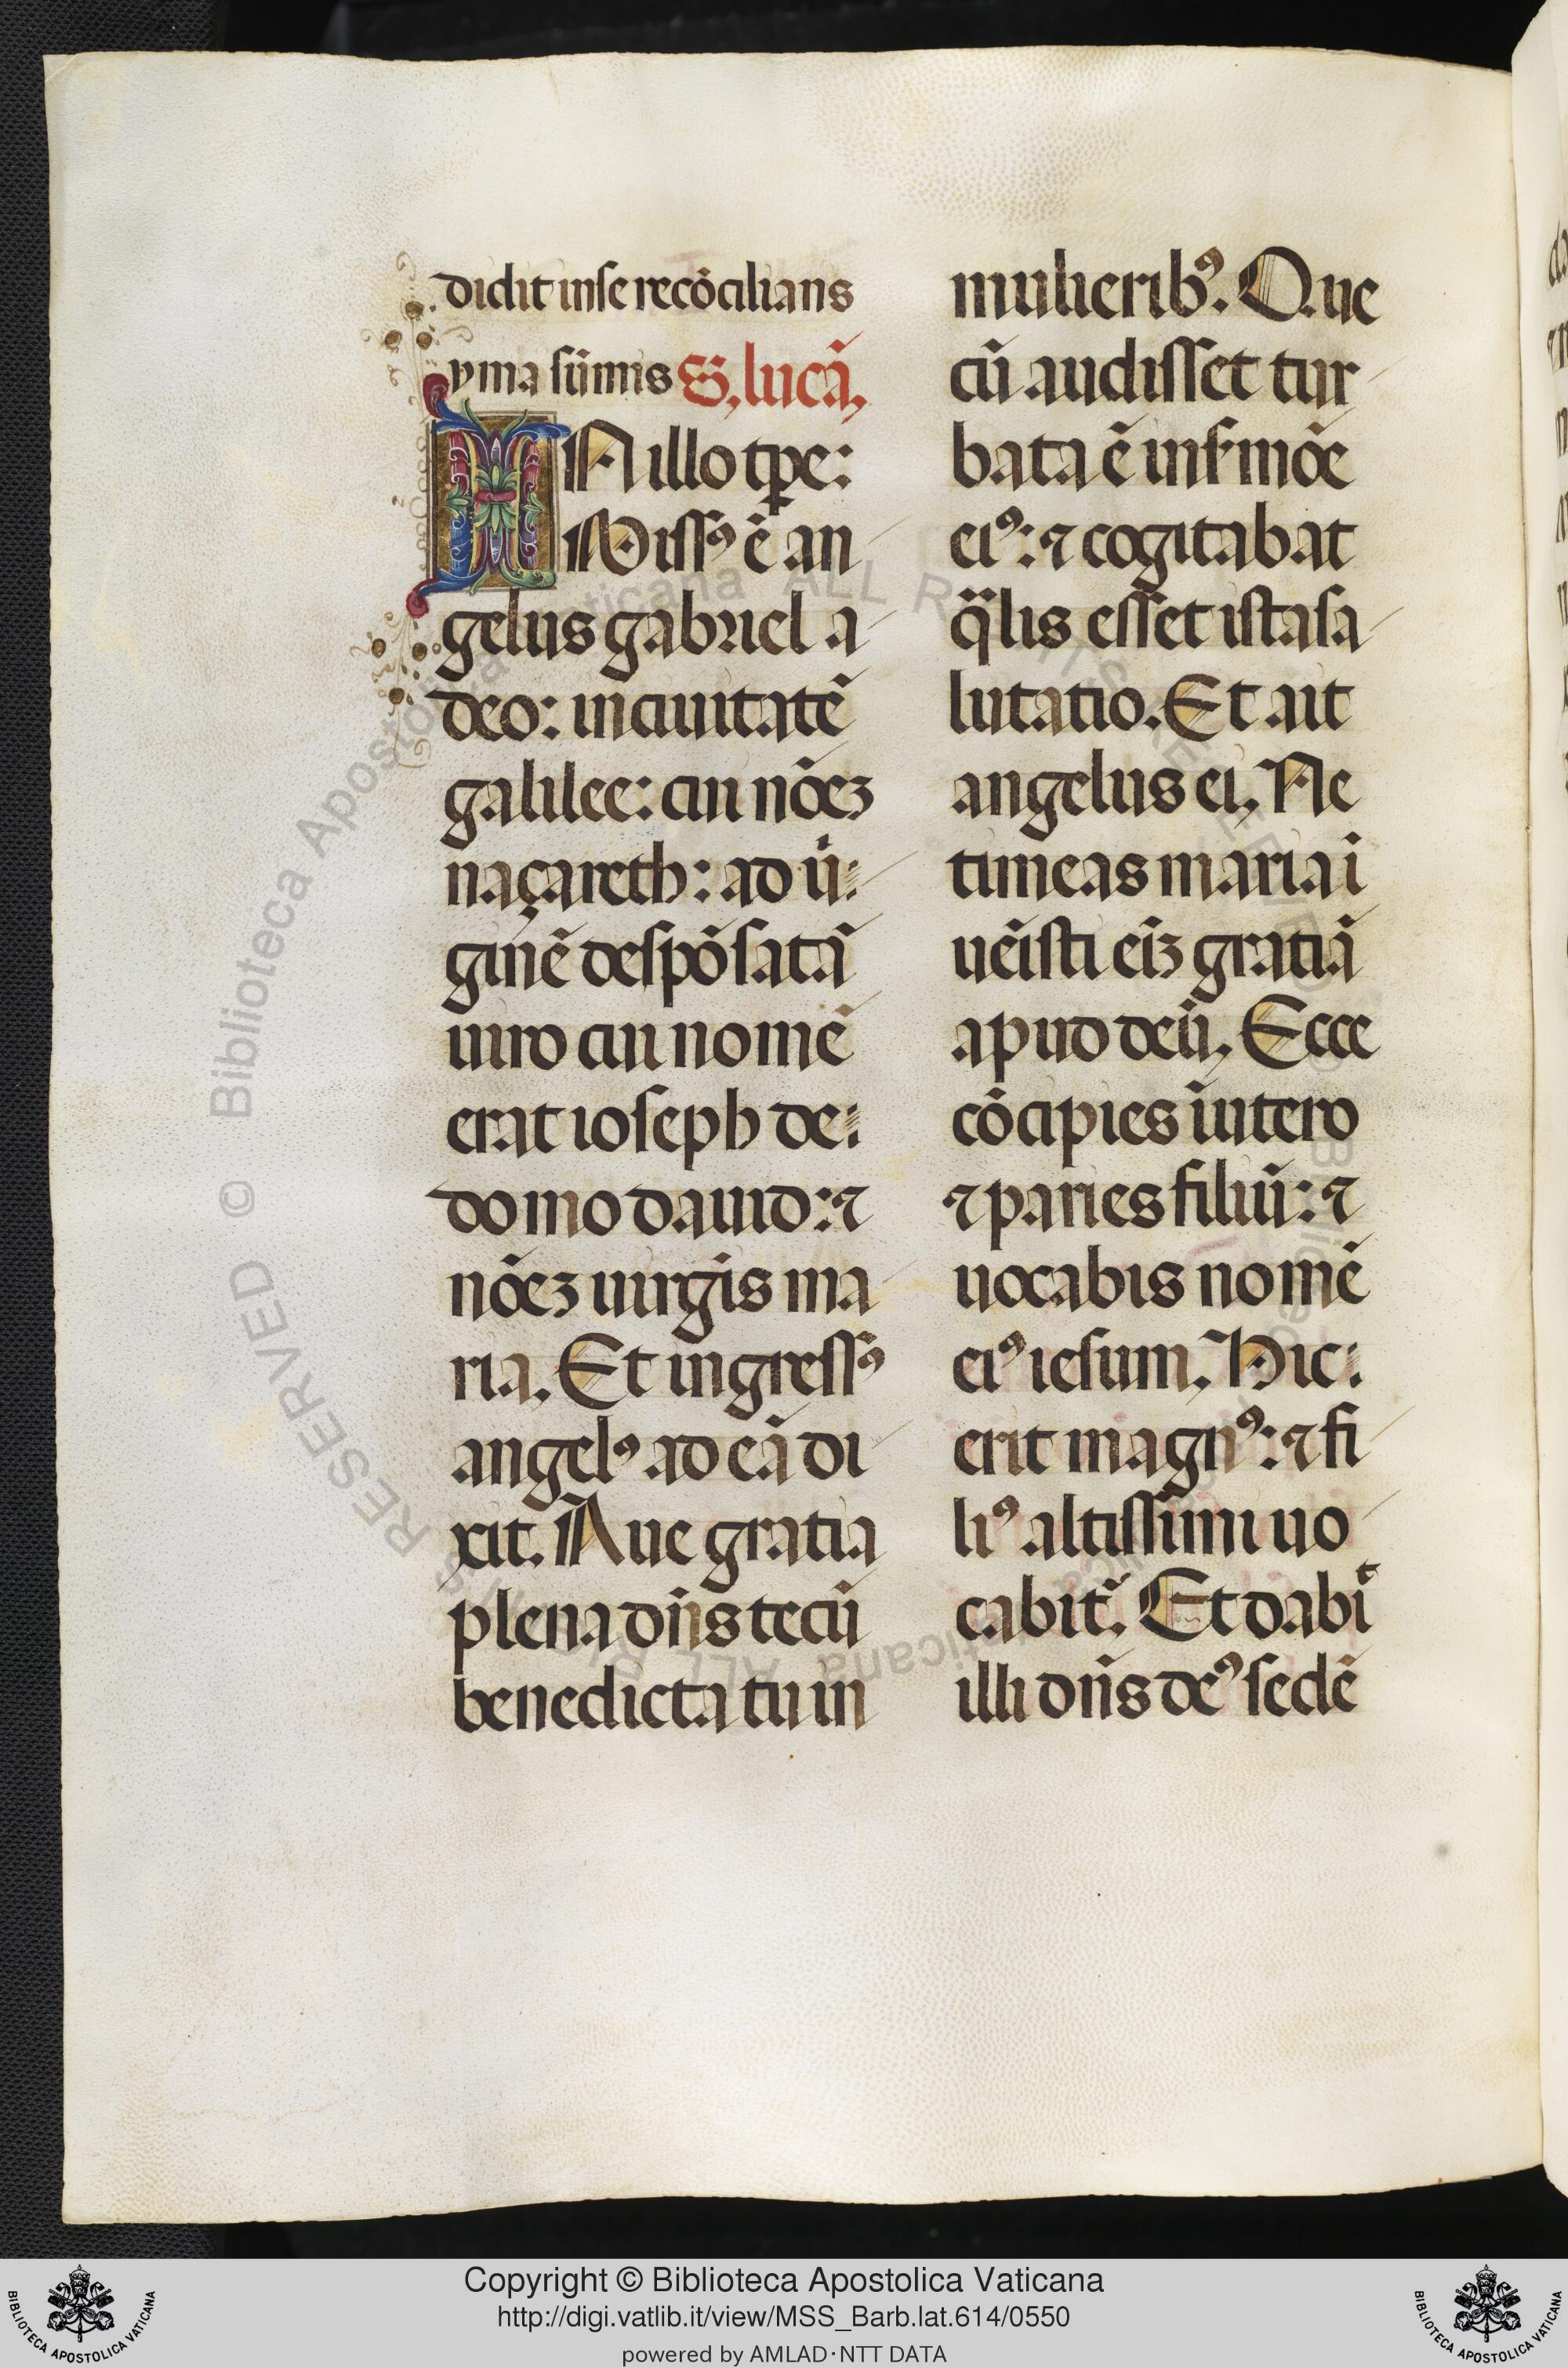 didit inse recōcilians
yma sūmis S, lucā,
IN illo tpe:
Missꝰ ē an
gelus gabriel a
deo: in ciuitatē
galilee: cui nōeꝫ
naçareth: ad uí
ginē despōsatā
uiro cui nomē
erat ioseph de
domo dauid: ⁊
nōeꝫ uirgīs ma
ria. Et ingressꝰ
angelꝰ ad eā di
xit. Aue gratia
plena dn̄s tecū
benedicta tu in
mulieribꝰ. Que
cū audisset tur
bata ē in s̓mōe
eiꝰ: ⁊ cogitabat
q̈lis esset ista sa
lutatio. Et ait
angelus ei, Ne
timeas maria ī
uēisti eīꝫ gratiā
apud deū, Ecce
cōcipies ī utero
⁊ paries filiū: ⁊
uocabis nomē
eiꝰ iesum, Hic
erit magnꝰ: ⁊ fi
liꝰ altissimi uo
cabit᷑. Et dabiͭ
illi dn̄s deꝰ sedē
© Biblioteca Apostolica Vaticana ALL RIGHTS RESERVED
Copyright © Biblioteca Apostolica Vaticana
http://digi.vatlib.it/view/MSS_Barb.lat.614/0550
powered by AMLAD·NTT DATA
BIBLIOTECA APOSTOLICA VATICANA
BIBLIOTECA APOSTOLICA VATICANA